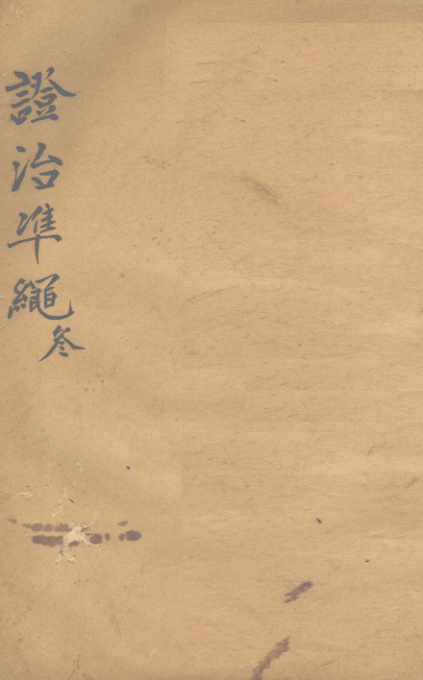 證治準繩
叅